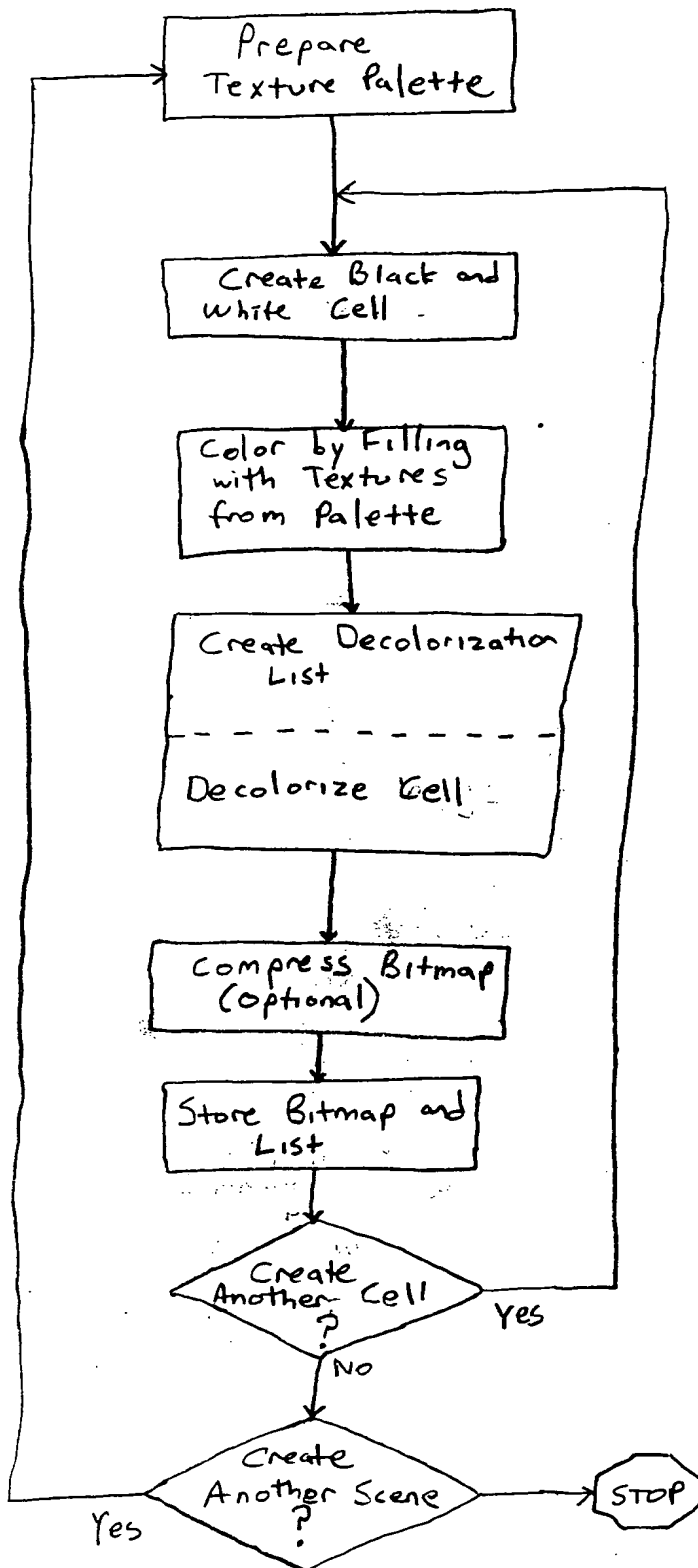 Prepare
Texture Palette
Create Black and
White Cell
Color by Filling
with Textures
from Palette
Create Decolorization
List
Decolorize Cell
Compress Bitmap
(Optional)
Store Bitmap and
List
Create
Another Cell
?
Yes
No
Create
Another Scene
?
Yes
STOP